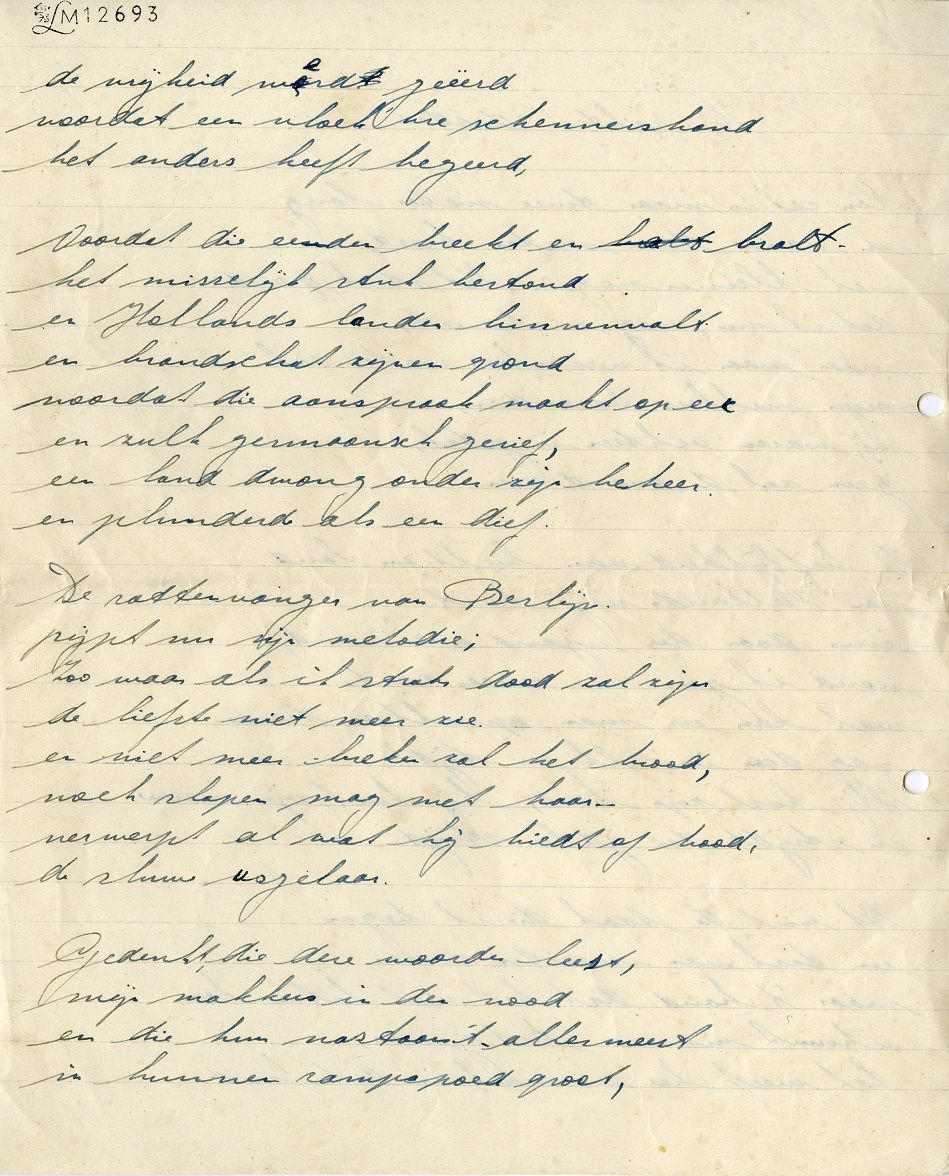 LM12693
de vrijheid werd geëerd
voordat een vloek'bre schennershand
het anders heeft begeerd,
Voordat die eeuden breekt en balt bralt -
het misselijk stuk bestond
en Hollands landen binnenvalt.
en brandschat zijnen grond
voordat die aanspraak maakt op eer
en zulk germaansch gerief,
een land dwong onder zijn beheer.
en plunderde als een dief.
De rattenvanger van Berlijn.
pijpt nu zijn melodie;
Zoo waar als ik straks dood zal zijn
de liefste niet meer zie.
en niet meer breken zal het brood,
noch slapen mag met haar -
verwerpt al wat hij biedt of bood,
de sluwe vogelaar.
Gedenkt, die deze woorden leest,
mijn makkers in den nood
en die hun nastaan 't allermeest
in hunnen rampspoed groot,